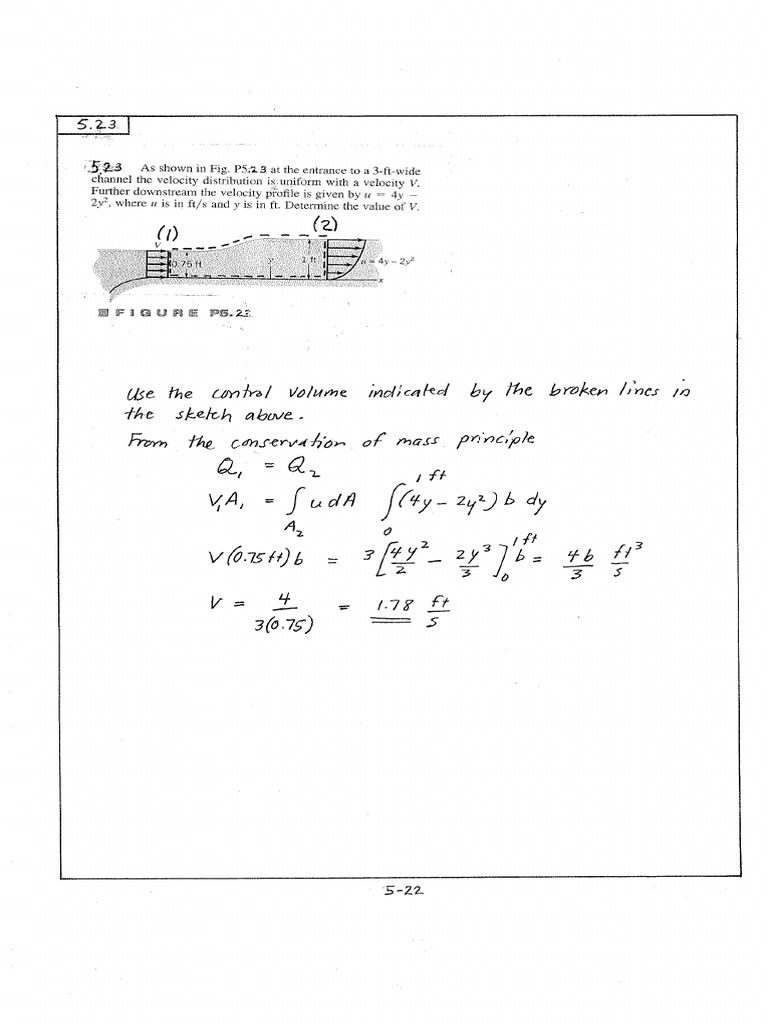 5.23
5.23 As shown in Fig. P5.23 at the entrance to a 3-ft-wide
channel the velocity distribution is uniform with a velocity V.
Further downstream the velocity profile is given by u = 4y −
2y², where u is in ft/s and y is in ft. Determine the value of V.
(1) (2)
V
0.75 ft y 1 ft u = 4y − 2y²
x
FIGURE P5.23
Use the control volume indicated by the broken lines in
the sketch above.
From the conservation of mass principle
Q₁ = Q₂
V₁A₁ = ∫_A₂ u dA ∫₀^1 ft (4y − 2y²) b dy
V(0.75 ft) b = 3 [4y²/2 − 2y³/3]₀^1 ft b = 4b/3 ft³/s
V = 4/3(0.75) = 1.78 ft/s
5-22